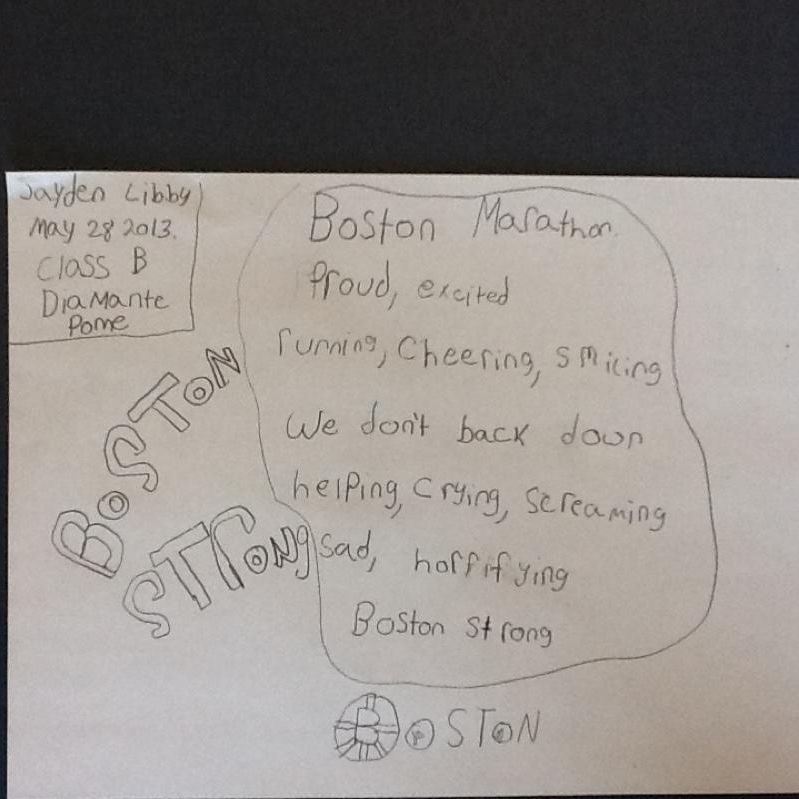 Jayden Libby
May 28 2013.
Class B
Diamante
Pome
Boston Marathon.
Proud, excited
running, Cheering, smiling
We don't back down
helping, Crying, Screaming
sad, horrifying
Boston strong
BOSTON
STrONg
BOSTON